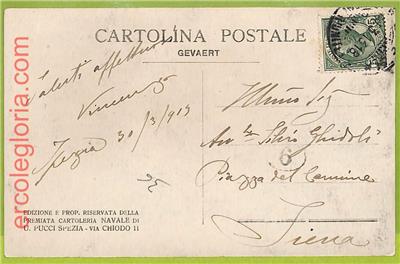 CARTOLINA POSTALE
GEVAERT
Saluti affettuosi
Vincenzo
Spezia 30/3/913
Illmo Sig
Avv. Silvio Ghidoli
Piazza del Comune
Siena
6
EDIZIONE E PROP. RISERVATA DELLA
PREMIATA CARTOLERIA NAVALE DI
U. PUCCI SPEZIA - VIA CHIODO 11
ercolegloria.com